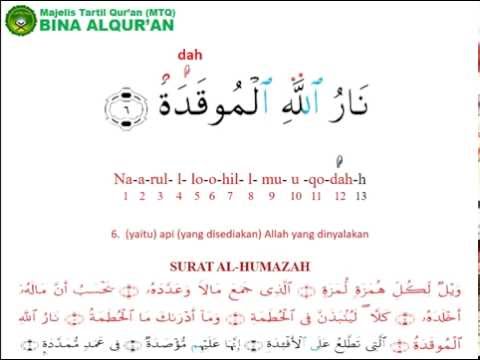 Majelis Tartil Qur'an (MTQ)
BINA ALQUR'AN
dah
نَارُ ٱللَّهِ ٱلْمُوقَدَةُ ٦
Na-a-rul- l- lo-o-hil- l- mu- u -qo-dah-h
1 2 3 4 5 6 7 8 9 10 11 12 13
6. (yaitu) api (yang disediakan) Allah yang dinyalakan
SURAT AL-HUMAZAH
وَيْلٌ لِّكُلِّ هُمَزَةٍ لُّمَزَةٍ ١ ٱلَّذِى جَمَعَ مَالًا وَعَدَّدَهُۥ ٢ يَحْسَبُ أَنَّ مَالَهُۥٓ
أَخْلَدَهُۥ ٣ كَلَّا ۖ لَيُنۢبَذَنَّ فِى ٱلْحُطَمَةِ ٤ وَمَآ أَدْرَىٰكَ مَا ٱلْحُطَمَةُ ٥ نَارُ ٱللَّهِ
ٱلْمُوقَدَةُ ٦ ٱلَّتِى تَطَّلِعُ عَلَى ٱلْأَفْـِٔدَةِ ٧ إِنَّهَا عَلَيْهِم مُّؤْصَدَةٌ ٨ فِى عَمَدٍ مُّمَدَّدَةٍۭ ٩